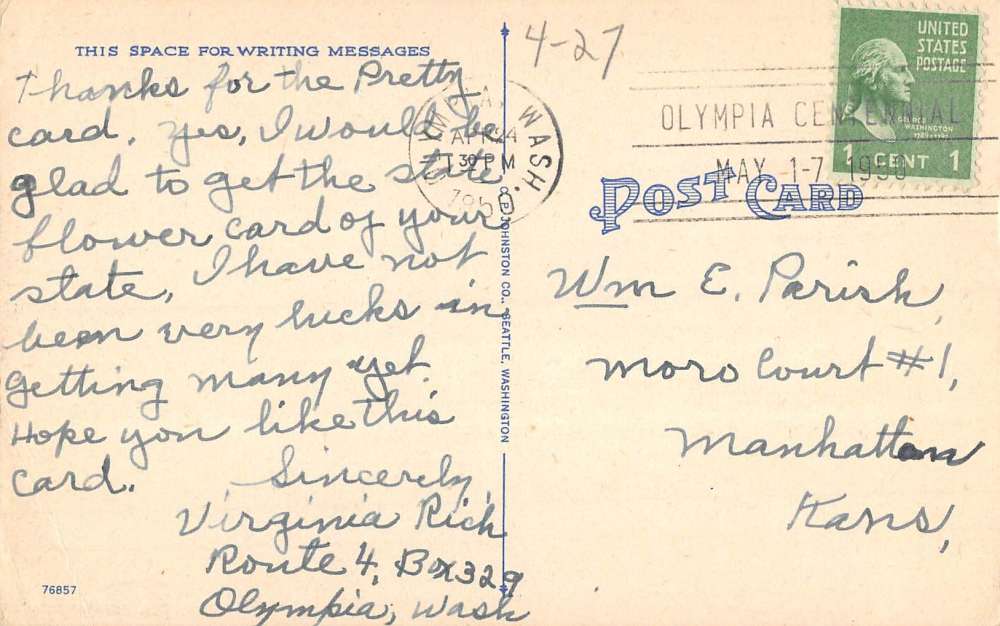 THIS SPACE FOR WRITING MESSAGES
Thanks for the Pretty
card. Yes, I would be
glad to get the state
flower card of your
state, I have not
been very lucks in
getting many yet.
Hope you like this
card.
Sincerely,
Virginia Rich
Route 4, Box 329
Olympia, Wash
76857
JOHNSTON CO., SEATTLE, WASHINGTON
4-27
OLYMPIA, WASH.
APR 24
1 30 PM
1950
OLYMPIA CENTENNIAL
MAY 1-7 1950
UNITED
STATES
POSTAGE
GEORGE
WASHINGTON
1 CENT 1
POST CARD
Wm E. Parish,
Moro Court #1,
Manhattan
Kans,